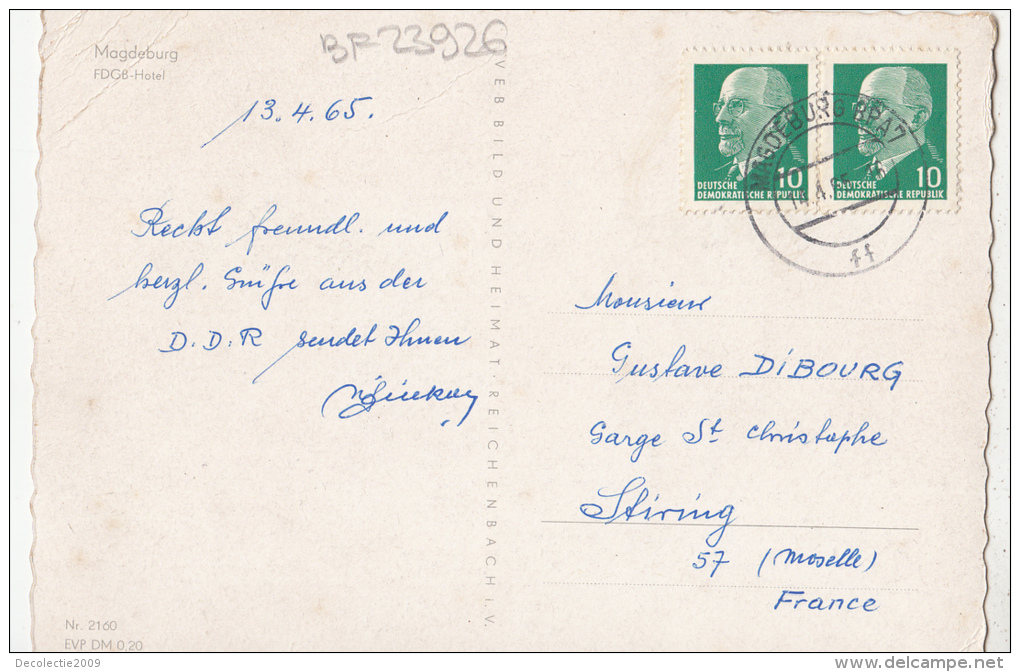 Magdeburg
FDGB-Hotel
BF 23926
13.4.65.
Recht freundl. und
herzl. Grüße aus der
D.D.R sendet Ihnen
VEB BILD UND HEIMAT · REICHENBACH i. V.
Nr. 2160
EVP DM 0,20
10
DEUTSCHE
DEMOKRATISCHE REPUBLIK
10
DEUTSCHE
DEMOKRATISCHE REPUBLIK
MAGDEBURG BPA 7
14.4.65
ff
Monsieur
Gustave DiBOURG
Garge St Christophe
Stiring
57 (Moselle)
France
Decolectie2009
www.delcampe.net